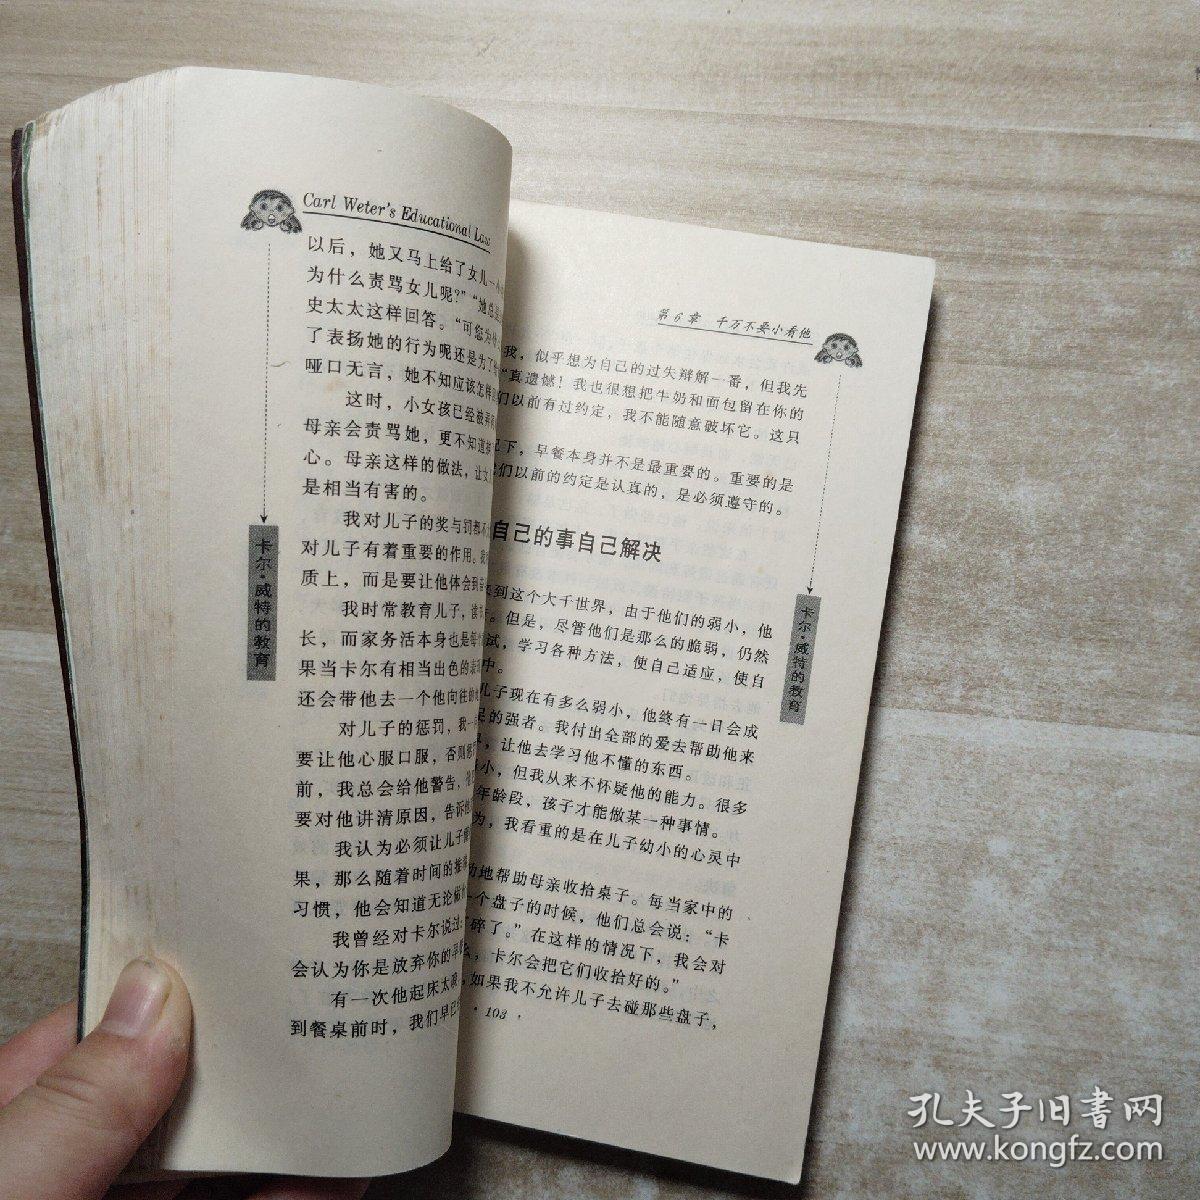 Carl Weter's Educational Law
以后，她又马上给了女儿一
为什么责骂女儿呢？”“她总是
史太太这样回答。“可您为什
了表扬她的行为呢还是为了
哑口无言，她不知应该怎样
这时，小女孩已经被弄
母亲会责骂她，更不知道
心。母亲这样的做法，让女
是相当有害的。
我对儿子的奖与罚都不
对儿子有着重要的作用。我
质上，而是要让他体会到
我时常教育儿子，读
长，而家务活本身也是每
果当卡尔有相当出色的表
还会带他去一个他向往的
对儿子的惩罚，我一
要让他心服口服，否则
前，我总会给他警告，
要对他讲清原因，告诉他
我认为必须让儿子
果，那么随着时间的推
习惯，他会知道无论做
我曾经对卡尔说过：
会认为你是放弃你的早
有一次他起床太晚，
到餐桌前时，我们早已
卡尔·威特的教育
第6章 千万不要小看他
我，似乎想为自己的过失辩解一番，但我先
“真遗憾！我也很想把牛奶和面包留在你的
们以前有过约定，我不能随意破坏它。这只
况下，早餐本身并不是最重要的。重要的是
们以前的约定是认真的，是必须遵守的。
自己的事自己解决
到这个大千世界，由于他们的弱小，他
。但是，尽管他们是那么的脆弱，仍然
试，学习各种方法，使自己适应，使自
中。
儿子现在有多么弱小，他终有一日会成
足的强者。我付出全部的爱去帮助他来
界，让他去学习他不懂的东西。
小，但我从来不怀疑他的能力。很多
年龄段，孩子才能做某一种事情。
为，我看重的是在儿子幼小的心灵中
动地帮助母亲收拾桌子。每当家中的
一个盘子的时候，他们总会说：“卡
碎了。”在这样的情况下，我会对
么，卡尔会把它们收拾好的。”
如果我不允许儿子去碰那些盘子，
· 103 ·
卡尔·威特的教育
孔夫子旧书网
www.kongfz.com